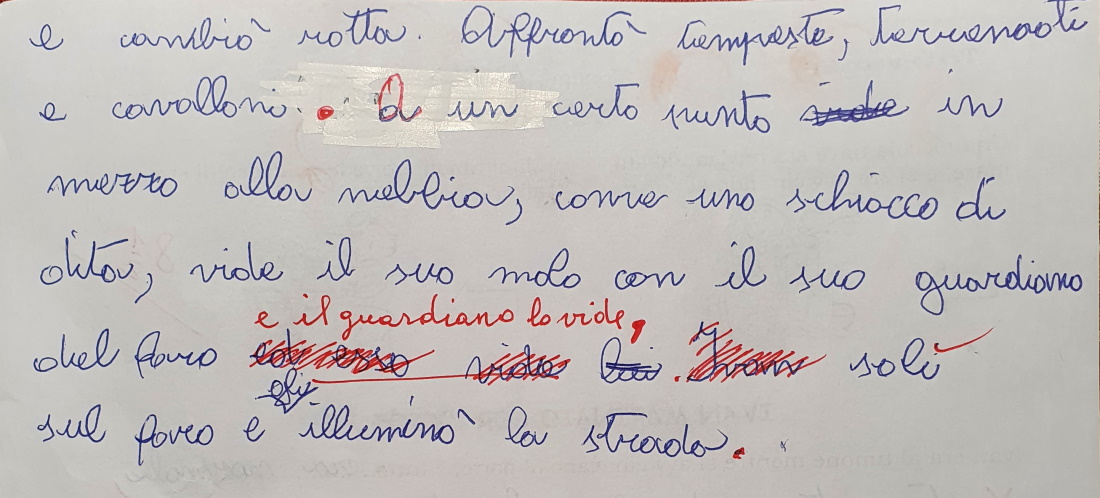 e cambiò rotta. Affrontò tempeste, terremoti
e cavalloni. A un certo punto in
mezzo alla nebbia, come uno schiocco di
dita, vide il suo molo con il suo guardiano
e il guardiano lo vide,
del faro ed esso vide lui. Ivan salì
gli
sul faro e illuminò la strada.